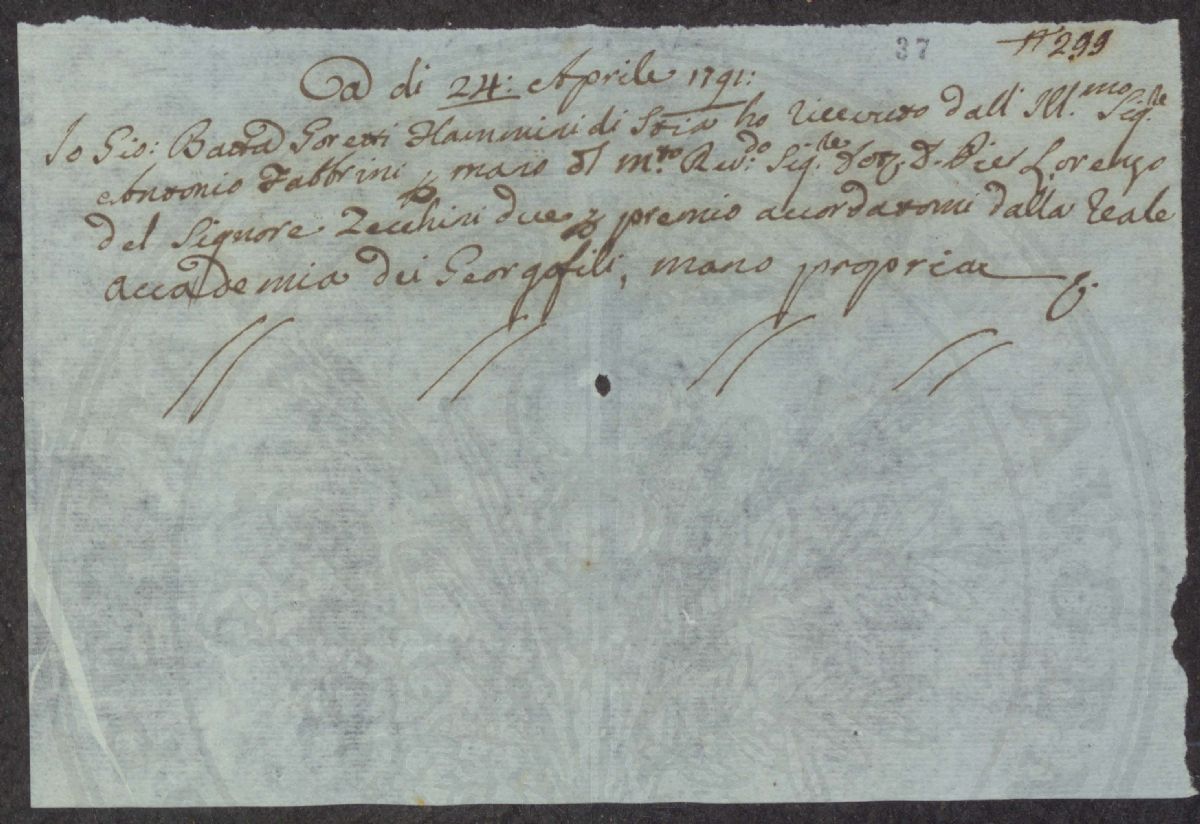 37
N° 299
A di 24: Aprile 1791:
Io Gio: Batta Goretti Flammini di Stia ho ricevuto dall' Ill.mo Sig.re
Antonio Fabbrini p mano del m.to Rev.do Sig.re Dott. D. Pier Lorenzo
del Signore Zecchini due p premio accordatomi dalla Reale
Accademia dei Georgofili, mano propria